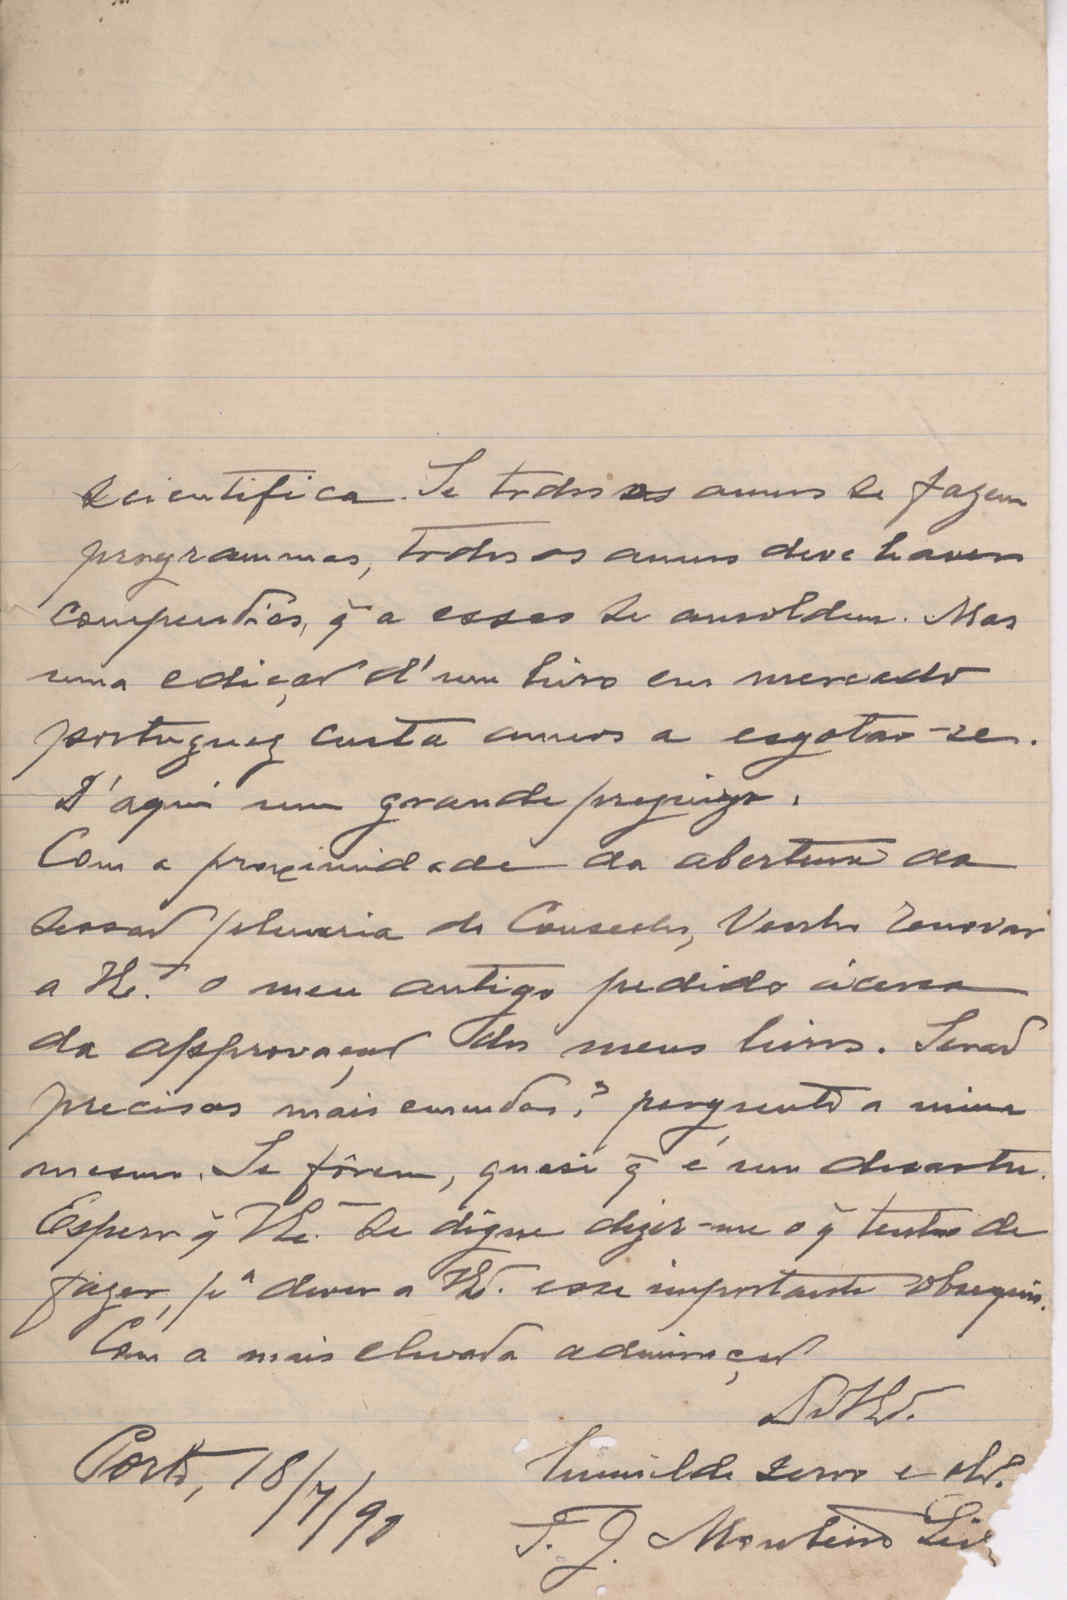 scientifica. Se todos os annos se fazem
programmas, todos os annos deve haver
compendios, q̃ a esses se amoldem. Mas
uma edição d'um livro em mercado
portuguez custa annos a esgotar-se.
D'aqui um grande prejuizo.
Com a proximidade da abertura da
sessão plenaria do Conselho, venho renovar
a VEx.ª o meu antigo pedido ácerca
da approvação dos meus livros. Serão
precisas mais emendas? pergunto a mim
mesmo. Se fôrem, quasi q̃ é um desastre.
Espero q̃ VEx.ª se digne dizer-me o q̃ tenho de
fazer, pª dever a VEx.ª esse importante obsequio.
Com a mais elevada admiração
De VEx.ª
humilde servo e obd.
Porto, 18/7/90
F. J. Monteiro